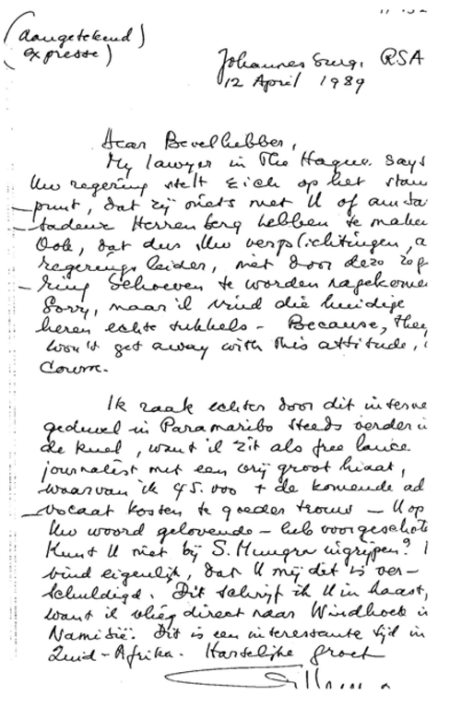 (aangetekend)
(expresse)
Johannesburg, RSA
12 April 1989
Dear Bevelhebber,
My lawyer in The Hague says
Uw regering stelt zich op het stand
punt, dat zij niets met U of
Herrenberg hebben te maken
Ook, dat dus Uw verplichtingen, a
regerings leider, niet door deze reg
ring behoeven te worden nagekomen
Sorry, maar ik vind die huidige
heren echte sukkels - Because, they
won't get away with this attitude,
Course.
Ik raak echter door dit interne
gedonder in Paramaribo steeds verder i
de knel, want ik zit als free lance
journalist met een vrij groot hiaat,
waarvan ik 45.000 + de komende ad
vocaat kosten te goeder trouw - U op
Uw woord gelovende - heb voorgeschote
Kunt U niet bij S. Mungra ingrijpen? I
vind eigenlijk, dat U mij dit is ver-
schuldigd. Dit schrijf ik U in haast,
want ik vlieg direct naar Windhoek i
Namibië. Dit is een interessante tijd in
Zuid-Afrika. Hartelijke groet